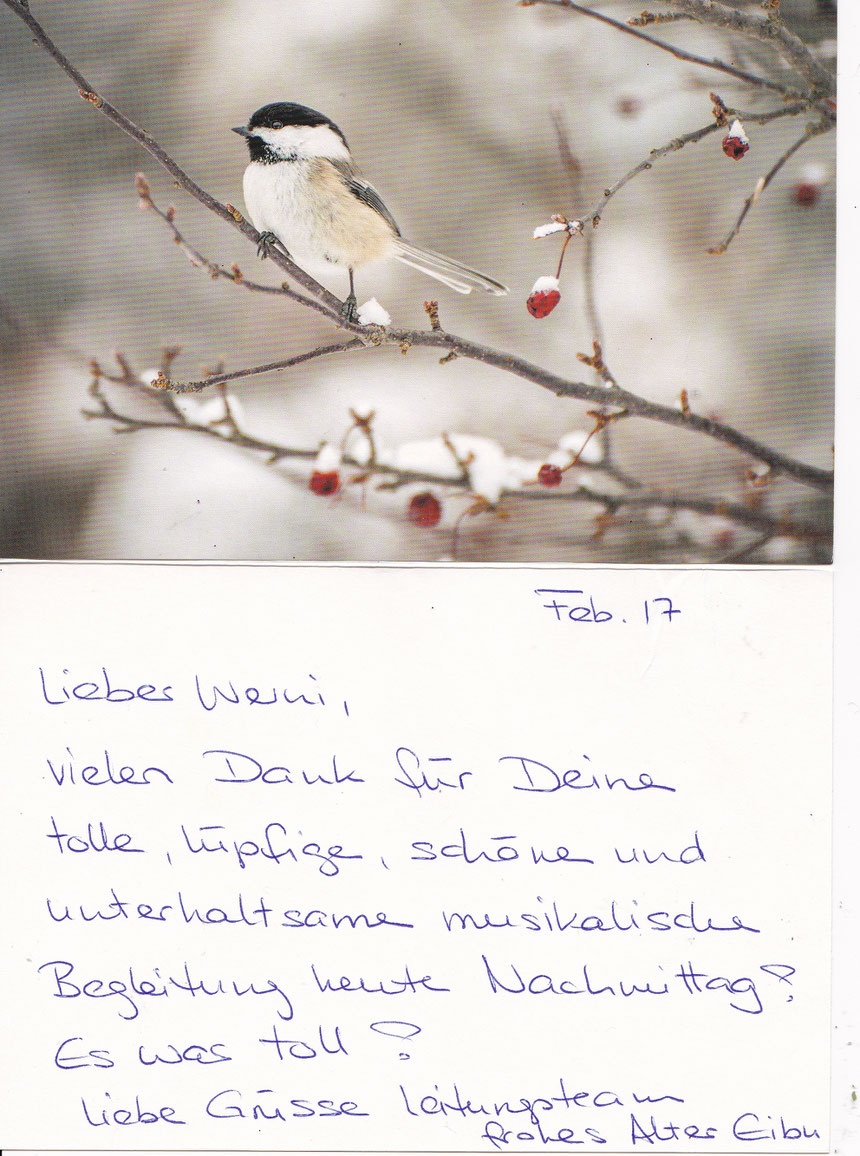 Feb. 17
Lieber Werni,
vielen Dank für Deine
tolle, lüpfige, schöne und
unterhaltsame musikalische
Begleitung heute Nachmittag!
Es war toll!
Liebe Grüsse Leitungsteam
frohes Alter Eibu